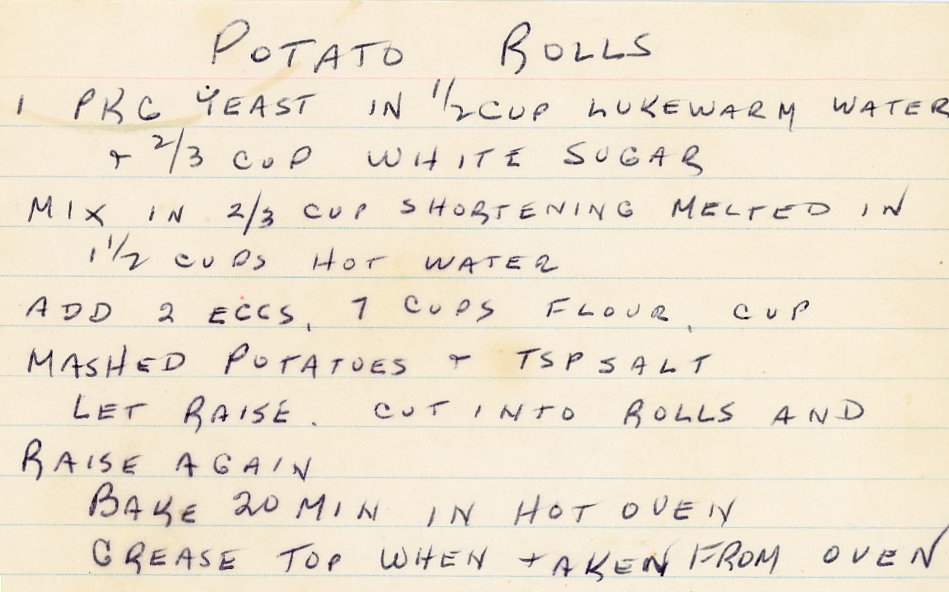 POTATO ROLLS
1 PKG YEAST IN 1/2 CUP LUKEWARM WATER
+ 2/3 CUP WHITE SUGAR
MIX IN 2/3 CUP SHORTENING MELTED IN
1 1/2 CUPS HOT WATER
ADD 2 EGGS, 7 CUPS FLOUR, CUP
MASHED POTATOES + TSP SALT
LET RAISE. CUT INTO ROLLS AND
RAISE AGAIN
BAKE 20 MIN IN HOT OVEN
GREASE TOP WHEN TAKEN FROM OVEN